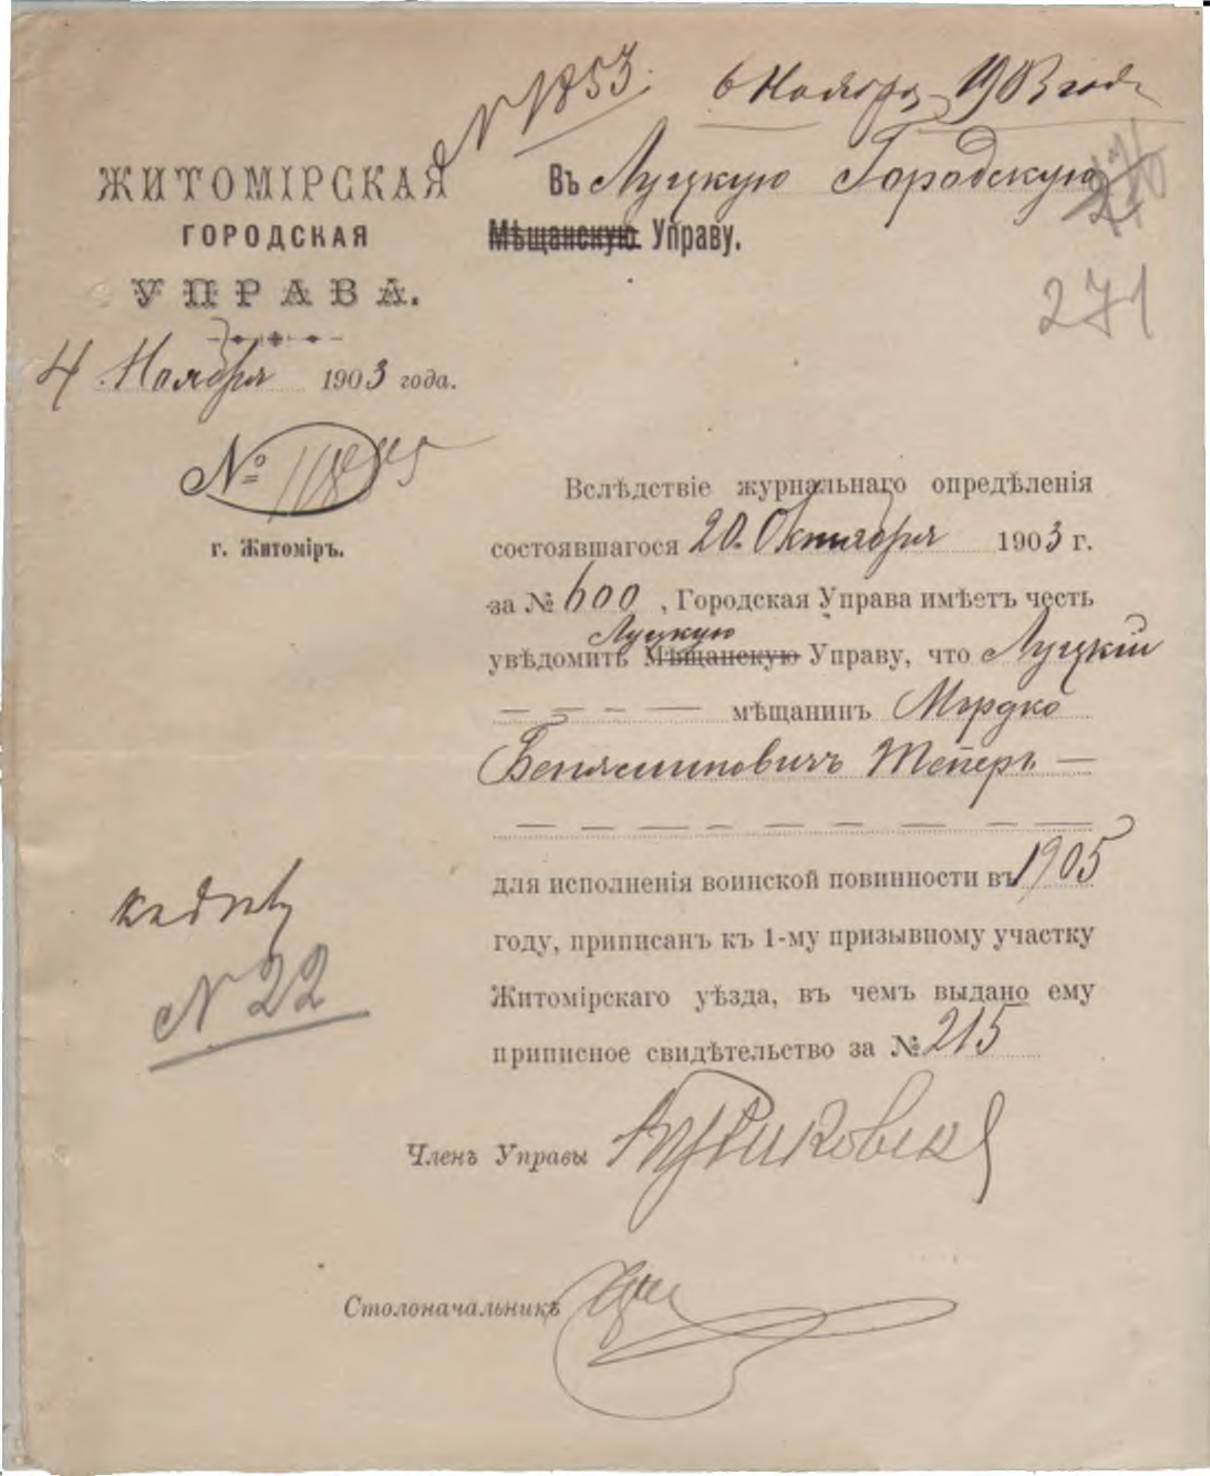 N 1853.
6 Ноября 1903 года
ЖИТОМІРСКАЯ
ГОРОДСКАЯ
УПРАВА.
4 Ноября 1903 года.
№
г. Житоміръ.
Въ Луцкую Городскую
Мѣщанскую Управу.
271
Вслѣдствіе журнальнаго опредѣленія
состоявшагося 20 Октября 1903 г.
за № 600, Городская Управа имѣетъ честь
Луцкую
увѣдомить Мѣщанскую Управу, что Луцкій
— — — — мѣщанинъ Мордко
Беньяминовичъ Теперъ —
— — — — — — — — —
для исполненія воинской повинности въ 1905
году, приписанъ къ 1-му призывному участку
Житомірскаго уѣзда, въ чемъ выдано ему
приписное свидѣтельство за № 215
N 22
Членъ Управы
Столоначальникъ